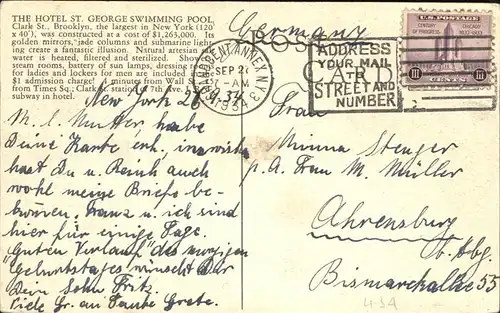 THE HOTEL ST. GEORGE SWIMMING POOL,
Clark St., Brooklyn, the largest in New York (120
x 40'), was constructed at a cost of $1,263,000. Its
golden mirrors, jade columns and submarine light-
ing create a fantastic illusion. Natural artesian
water is heated, filtered and sterilized.
steam rooms, battery of sun lamps, dressing
for ladies and lockers for men are included in
$1 admission charge! 4 minutes from Wall S
from Times Sq.; Clark St. station of 7th Ave.
subway in hotel.
Germany
POST CARD
ANNEX N.Y.
SEP 26
AM
1934
ADDRESS
YOUR MAIL
TO
STREET AND
NUMBER
U.S. POSTAGE
CENTURY OF PROGRESS
1833-1933
III CENTS III
New York 26.
9. 34
M. l. Mutter habe
Deine Karte erh. inzwisch
hast Du u. Reich auch
wohl meine Briefe be-
kommen. Franz u. ich sind
hier für einige Tage.
"Guten Verlauf" des morgigen
"Geburtstages" wünscht Dir
Dein Sohn Fritz.
Viele Gr. an Tante Grete.
Frau
Minna Stenger
p. A. Frau M. Müller
Ahrensburg
b. Hbg.
Bismarckallee 55